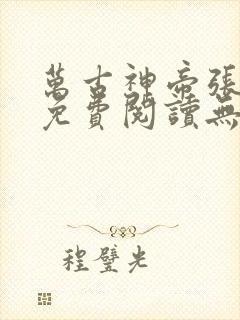 萬古神帝張
免費閱讀無
程璧光